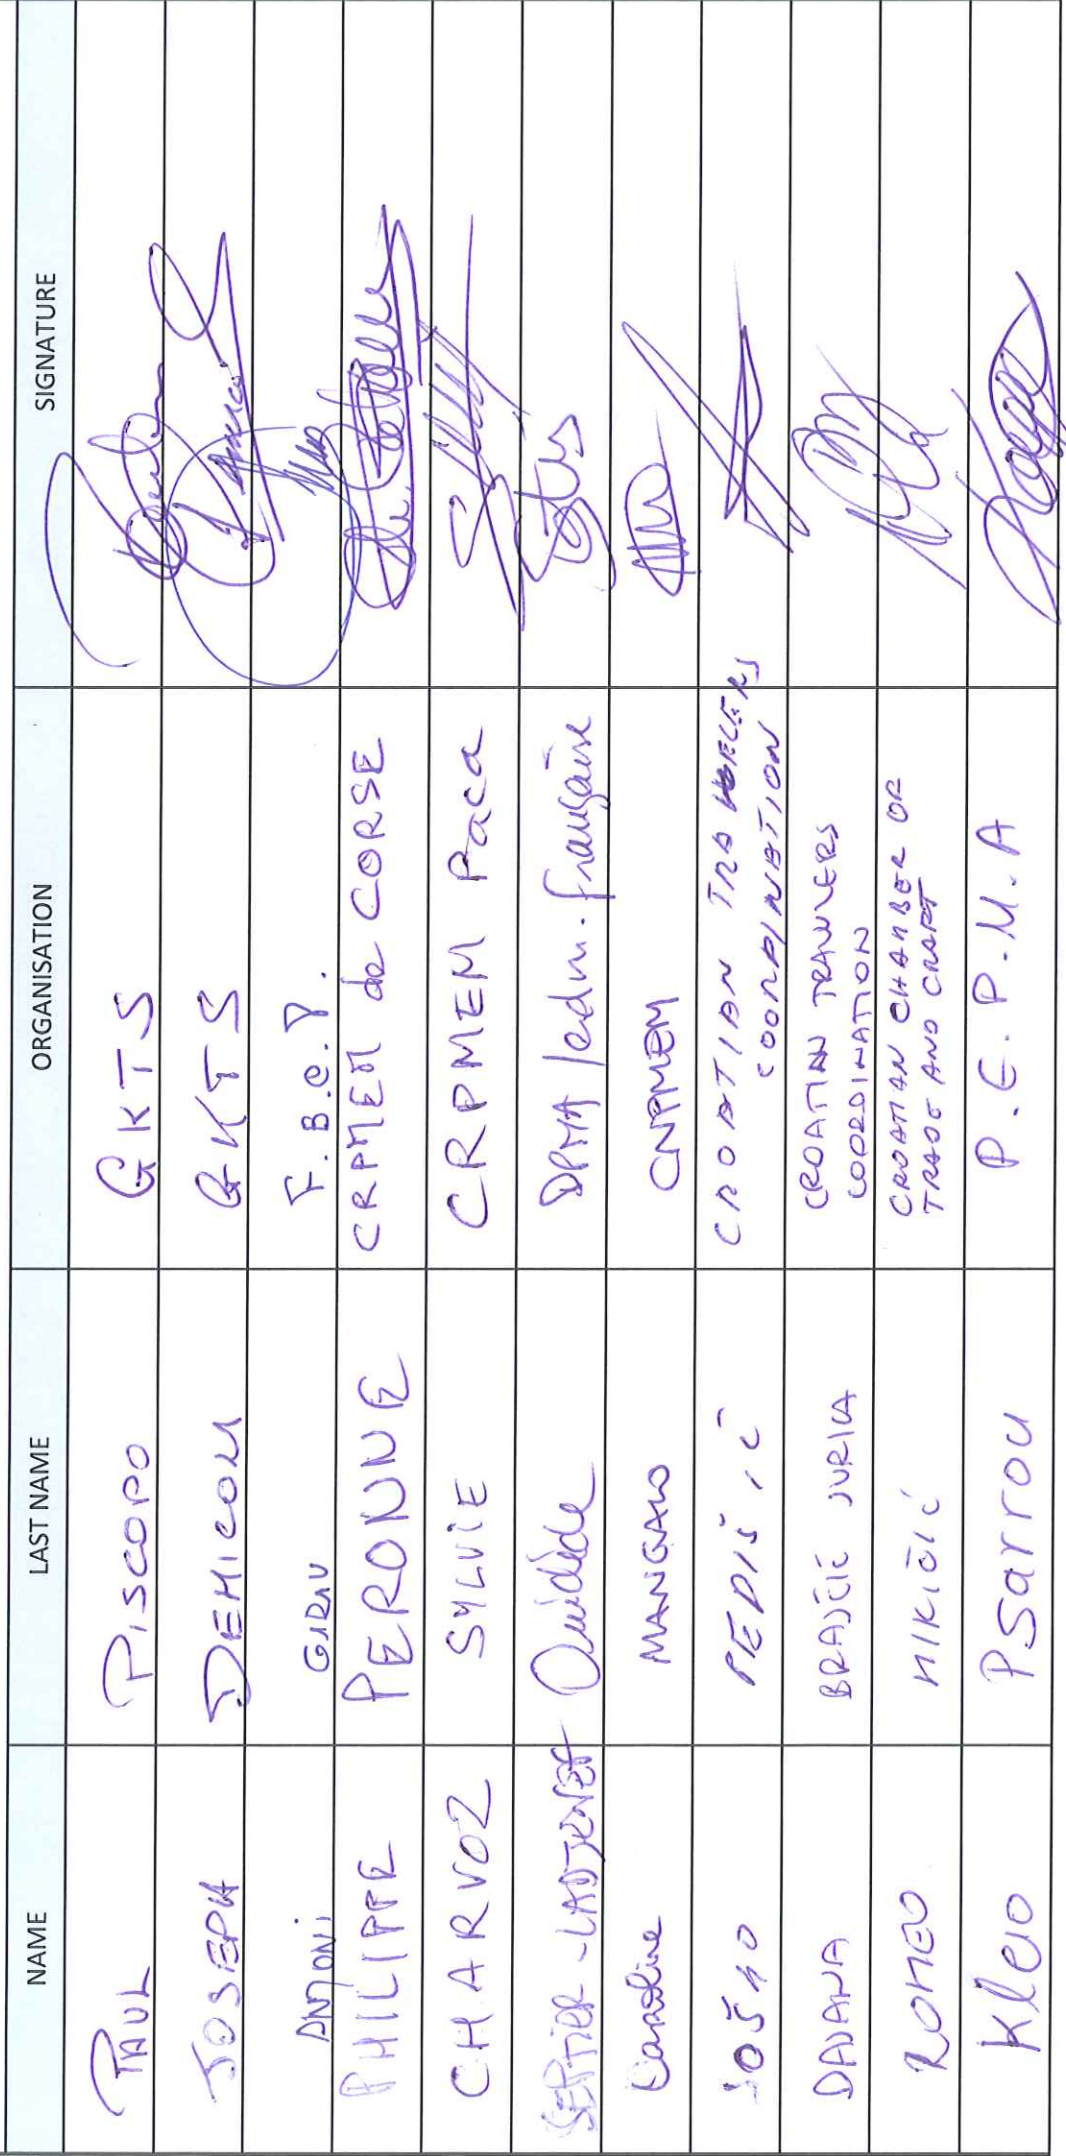 NAME LAST NAME ORGANISATION SIGNATURE
PAUL PISCOPO GKTS
JOSEPH DEMICOLI GKTS
ANTONI GARAU F.B.C.P.
PHILIPPE PERONNE CRPMEM de CORSE
CHARVOZ SYLVIE CRPMEM Paca
SEPTIER - DPMA /adm. française
Caroline MANGANO CNPMEM
JOŠKO PEDIŠIĆ CROATIAN TRAWLERS
COORDINATION
DAJANA BRAJČIĆ JURICA CROATIAN TRAWLERS
COORDINATION
ROMEO MIKIČIĆ CROATIAN CHAMBER OF
TRADE AND CRAFT
Kleio Psarrou P.E.P.M.A